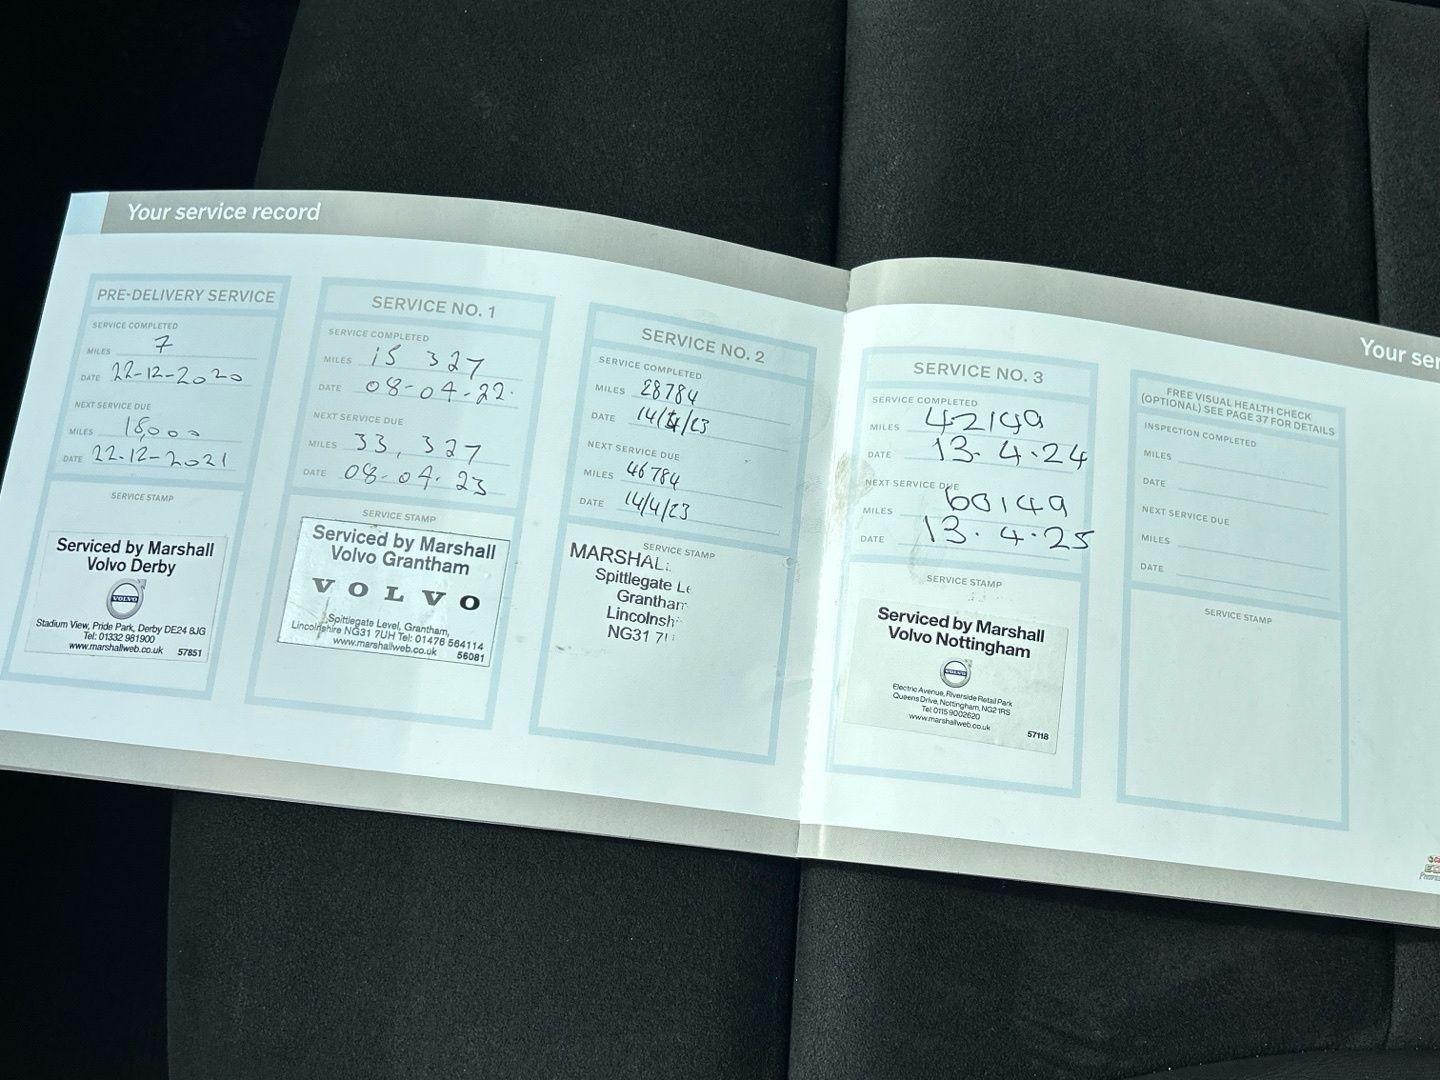 Your service record
PRE-DELIVERY SERVICE
SERVICE COMPLETED
MILES 7
DATE 22-12-2020
NEXT SERVICE DUE
MILES 18,000
DATE 22-12-2021
SERVICE STAMP
Serviced by Marshall
Volvo Derby
VOLVO
Stadium View, Pride Park, Derby DE24 8JG
Tel: 01332 981900
www.marshallweb.co.uk 57851
SERVICE NO. 1
SERVICE COMPLETED
MILES 15 327
DATE 08-04-22.
NEXT SERVICE DUE
MILES 33,327
DATE 08-04-23
SERVICE STAMP
Serviced by Marshall
Volvo Grantham
VOLVO
Spittlegate Level, Grantham,
Lincolnshire NG31 7UH Tel: 01476 564114
www.marshallweb.co.uk 56081
SERVICE NO. 2
SERVICE COMPLETED
MILES 28784
DATE 14/4/23
NEXT SERVICE DUE
MILES 46784
DATE 14/4/23
SERVICE STAMP
MARSHAL
Spittlegate Le
Grantham
Lincolnsh
NG31 7
SERVICE NO. 3
SERVICE COMPLETED
MILES 42149
DATE 13.4.24
NEXT SERVICE DUE
MILES 60149
DATE 13.4.25
SERVICE STAMP
Serviced by Marshall
Volvo Nottingham
VOLVO
Electric Avenue, Riverside Retail Park
Queens Drive, Nottingham, NG2 1RS
Tel: 0115 9002620
www.marshallweb.co.uk
57118
Your ser
FREE VISUAL HEALTH CHECK
(OPTIONAL) SEE PAGE 37 FOR DETAILS
INSPECTION COMPLETED
MILES
DATE
NEXT SERVICE DUE
MILES
DATE
SERVICE STAMP